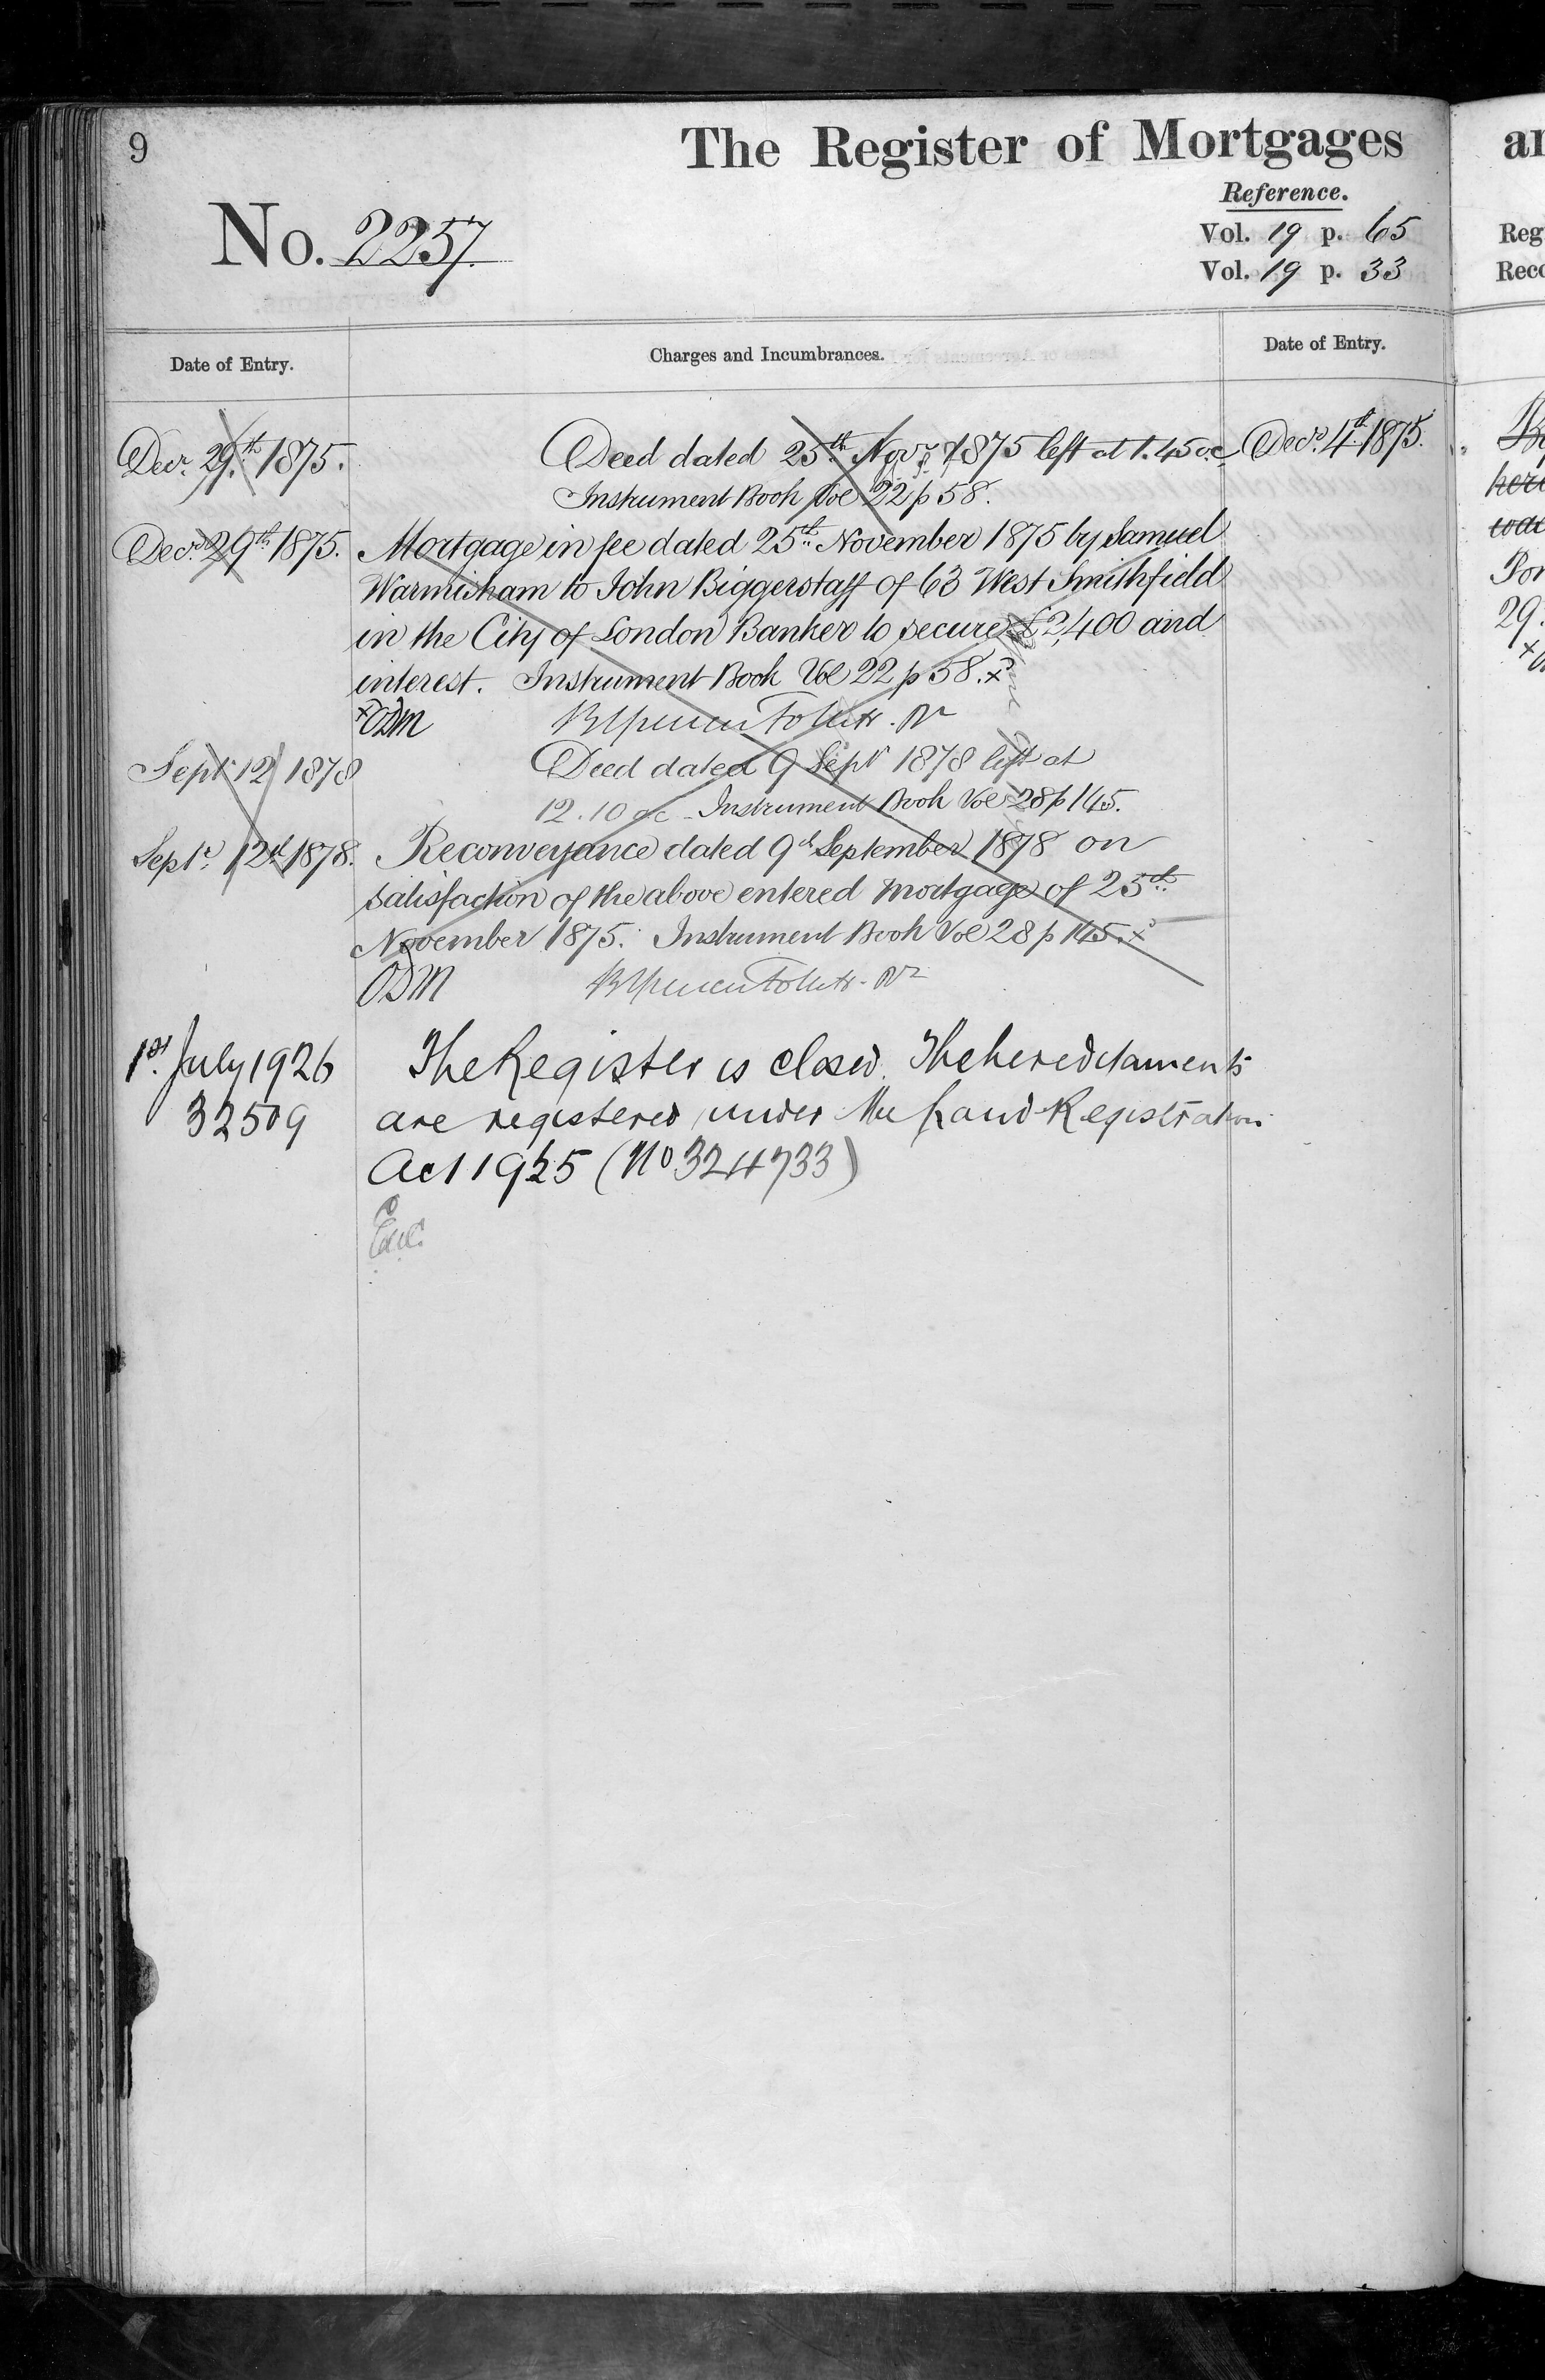 9
The Register of Mortgages
Reference.
No. 2257.
Vol. 19 p. 65
Vol. 19 p. 33
Date of Entry.
Charges and Incumbrances.
Date of Entry.
Decr. 29.th 1875.
Deed dated 25th Novr 1875 left at 1.45 oc
Decr. 4th 1875.
Instrument Book Vol 22 p 58.
Decr. 29th 1875.
Mortgage in fee dated 25th November 1875 by Samuel
Warmisham to John Biggerstaff of 63 West Smithfield
in the City of London Banker to secure £2,400 and
interest. Instrument Book Vol 22 p 58. x
x ODM
Sept 12 1878
Deed dated 9 Septr 1878 left at
12.10 oc - Instrument Book Vol 28 p 145.
Septr. 12th 1878.
Reconveyance dated 9th September 1878 on
satisfaction of the above entered mortgage of 25th
November 1875. Instrument Book Vol 28 p 145. x
ODM
1st. July 1926
The Register is closed. The hereditaments
32509
are registered under the Land Registration
Act 1925 (No 324733)
ar
Reg
Reco
here
Por
29.